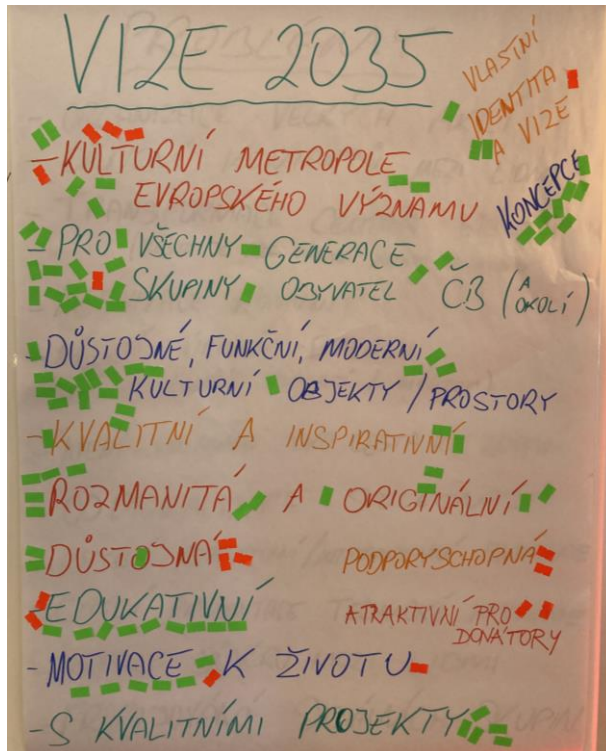 VIZE 2035
VLASTNÍ
IDENTITA
A VIZE
-KULTURNÍ METROPOLE
EVROPSKÉHO VÝZNAMU
KONCEPCE
-PRO VŠECHNY GENERACE
SKUPINY OBYVATEL ČB (A OKOLÍ)
-DŮSTOJNÉ, FUNKČNÍ, MODERNÍ
KULTURNÍ OBJEKTY / PROSTORY
-KVALITNÍ A INSPIRATIVNÍ
ROZMANITÁ A ORIGINÁLNÍ
DŮSTOJNÁ PODPORYSCHOPNÁ
-EDUKATIVNÍ ATRAKTIVNÍ PRO
DONÁTORY
-MOTIVACE K ŽIVOTU
-S KVALITNÍMI PROJEKTY